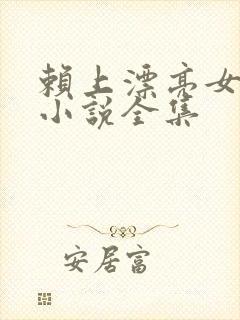 賴上漂亮女
小說全集
安居富